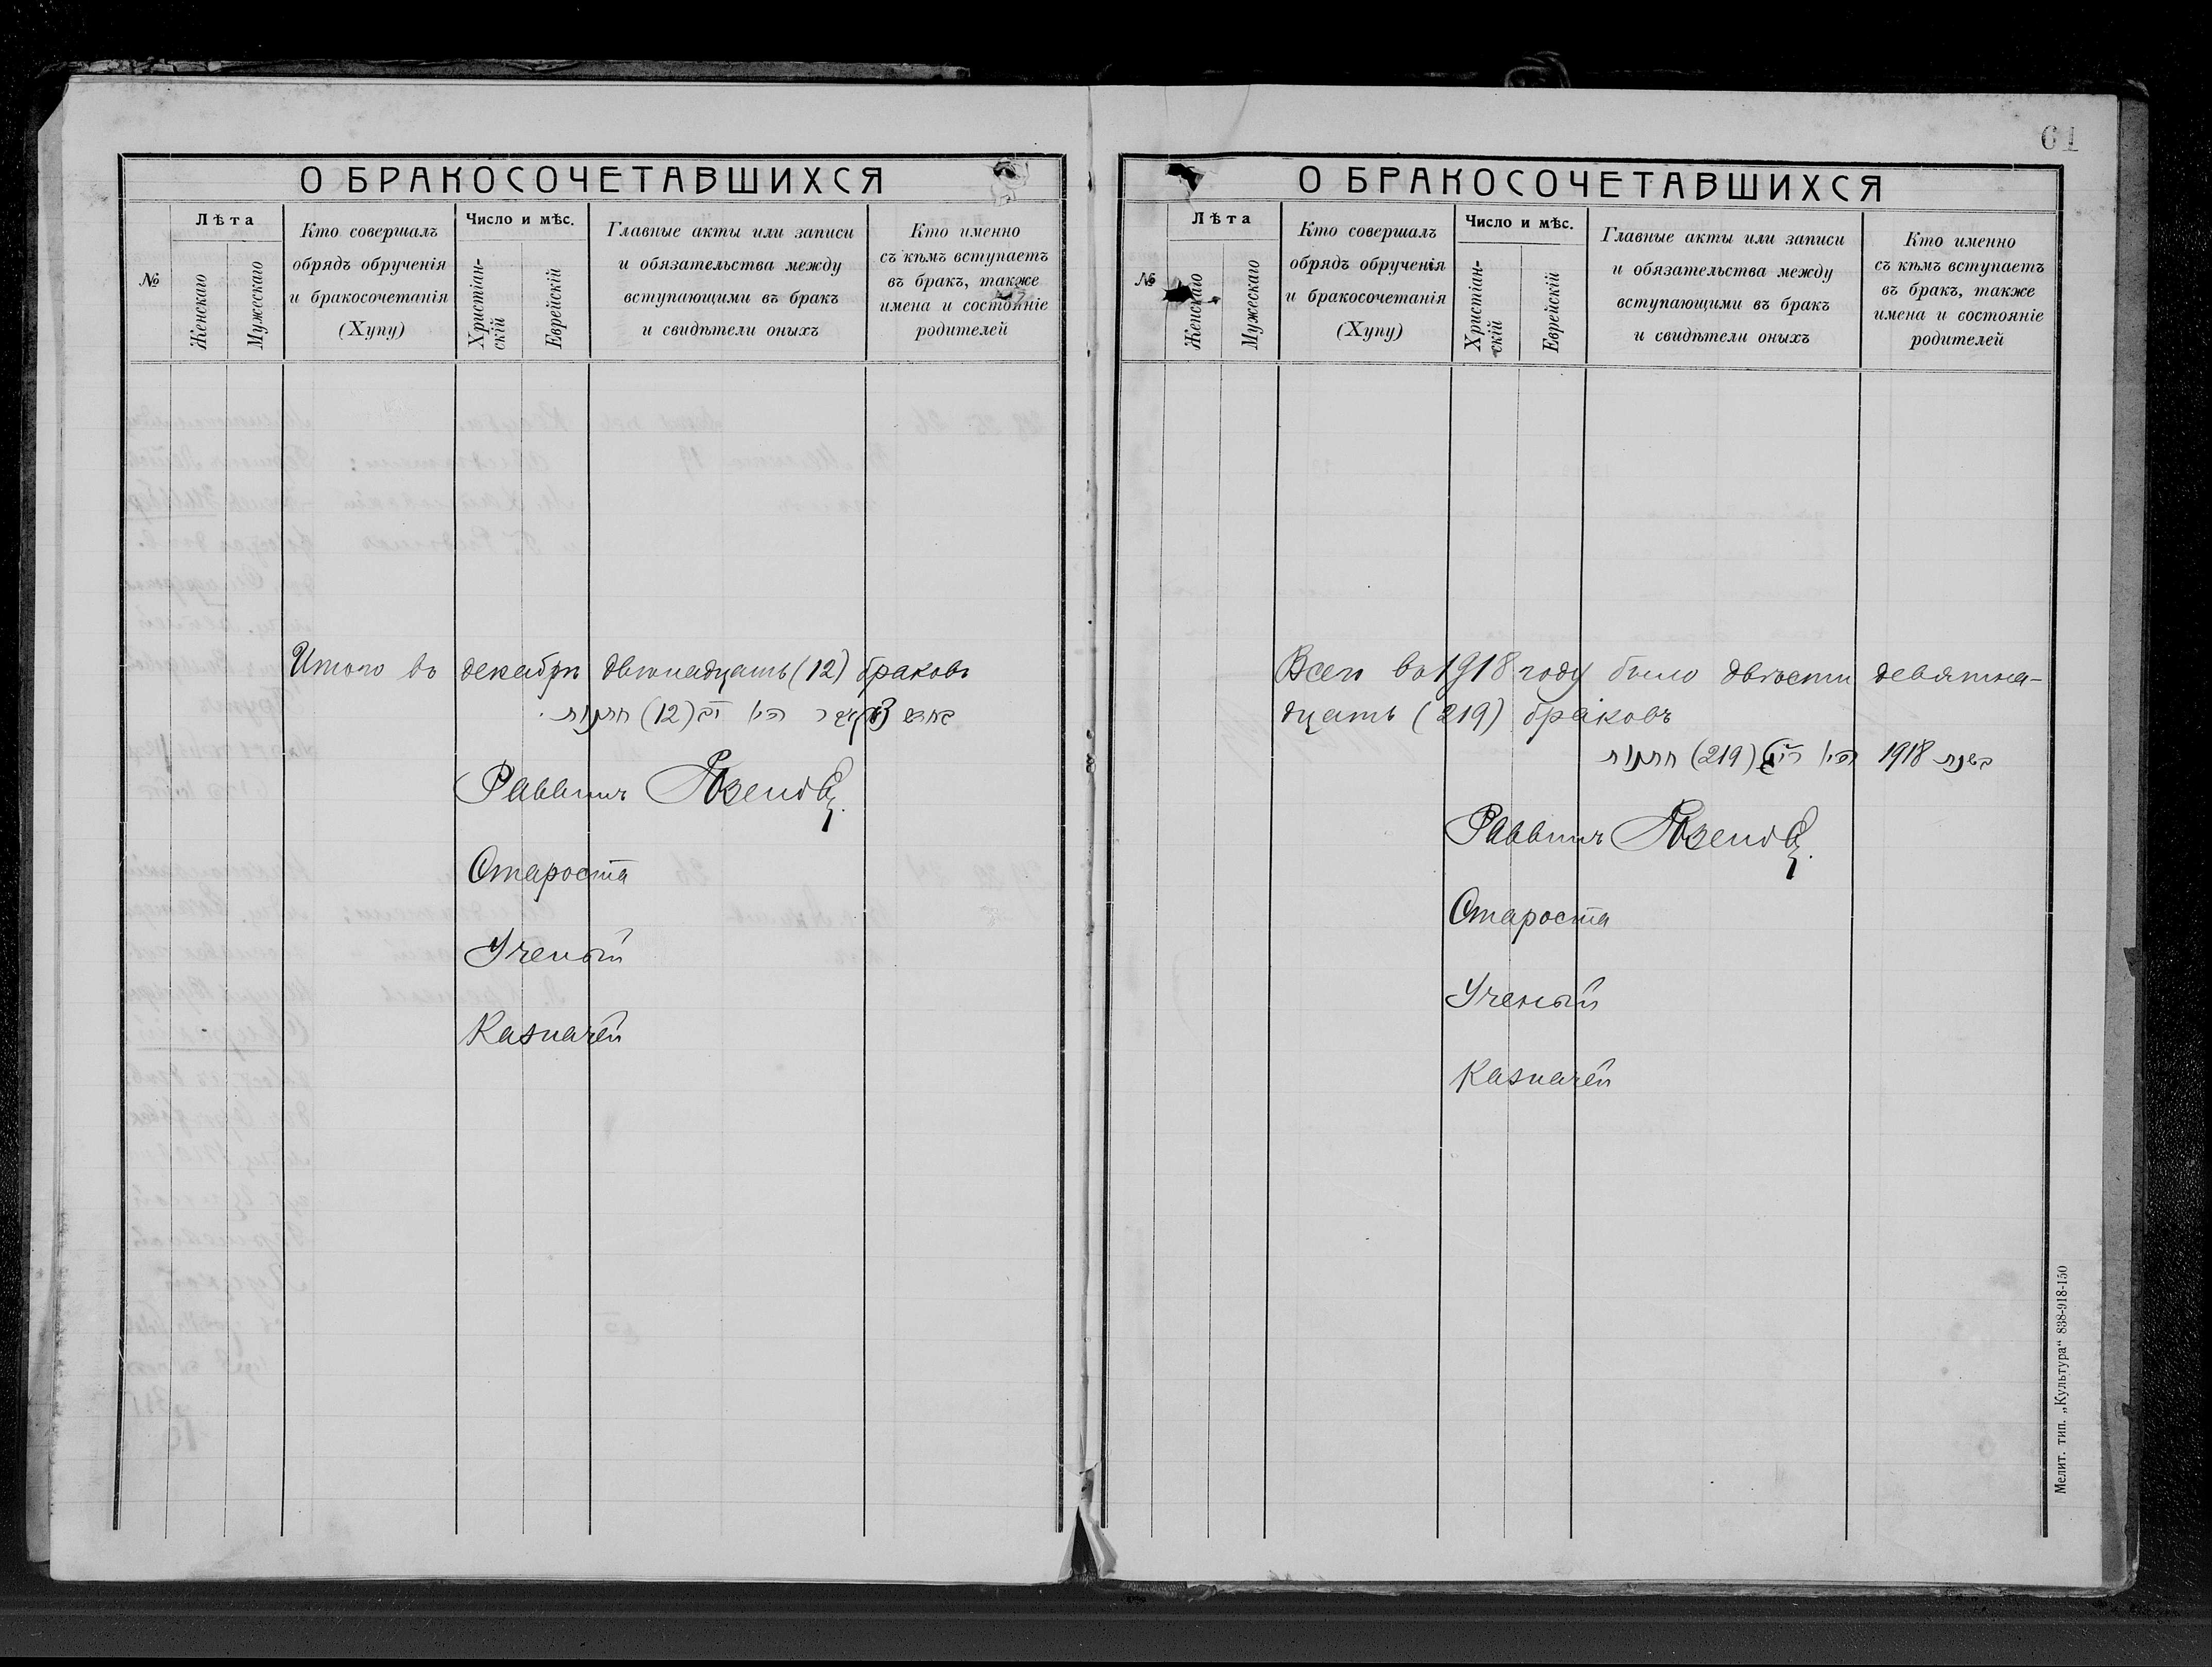 61
О БРАКОСОЧЕТАВШИХСЯ
№
Лѣта
Женскаго
Мужескаго
Кто совершалъ
обрядъ обрученія
и бракосочетанія
(Хупу)
Число и мѣс.
Христіан-
скій
Еврейскій
Главные акты или записи
и обязательства между
вступающими въ бракъ
и свидѣтели оныхъ
Кто именно
съ кѣмъ вступаетъ
въ бракъ, также
имена и состояніе
родителей
Итого въ декабрѣ двѣнадцать (12) браковъ
(12) חתונות
Раввинъ
Староста
Ученый
Казначей
О БРАКОСОЧЕТАВШИХСЯ
№
Лѣта
Женскаго
Мужескаго
Кто совершалъ
обрядъ обрученія
и бракосочетанія
(Хупу)
Число и мѣс.
Христіан-
скій
Еврейскій
Главные акты или записи
и обязательства между
вступающими въ бракъ
и свидѣтели оныхъ
Кто именно
съ кѣмъ вступаетъ
въ бракъ, также
имена и состояніе
родителей
Всего въ 1918 году было двѣсти девятна-
дцать (219) браковъ
בשנת 1918 היו (219) חתונות
Раввинъ
Староста
Ученый
Казначей
Мелит. тип. „Культура“ 838-918-150